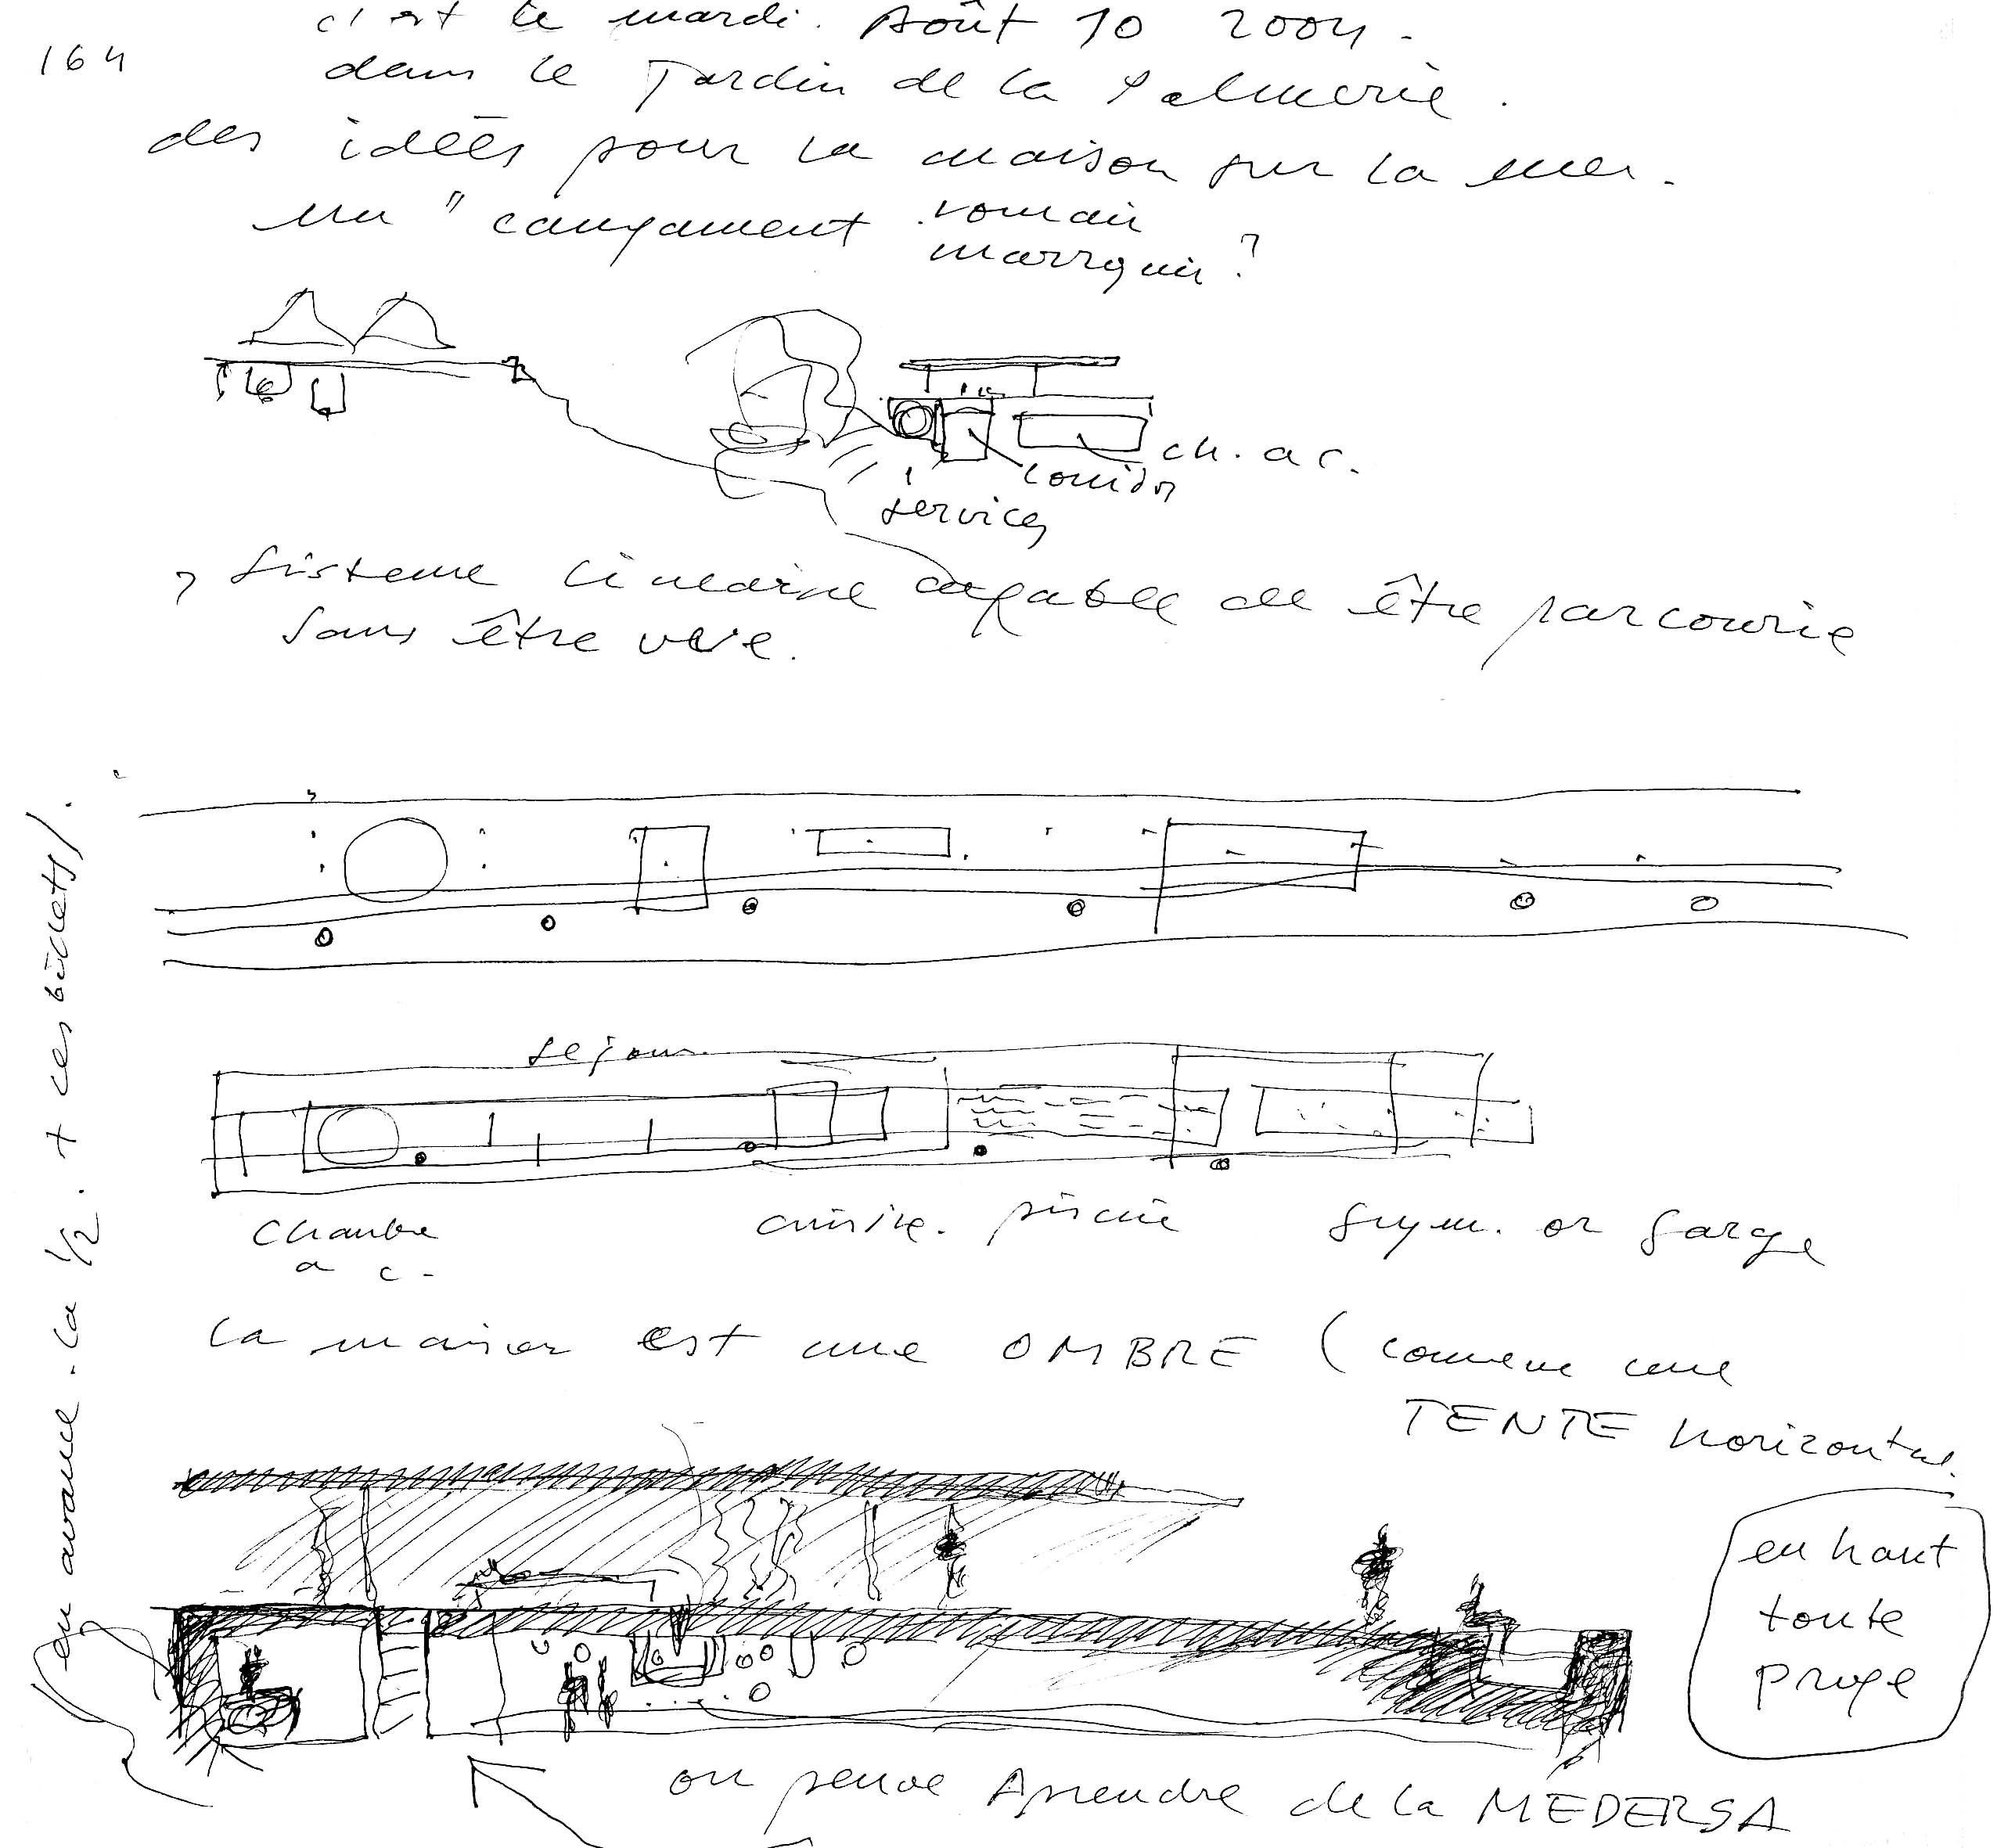 164
c'est le mardi. Août 10 2004.
dans le Jardin de la Palmerie.
des idées pour la maison sur la mer.
un " romain
marroquin?
ch. a c.
services
sisteme lineaire capable de être parcourie
sans être vue.
sejour
chambre
a c.
piscine
gym. or garge
la maison est une OMBRE (comme une
TENTE horizontal.
en haut
toute
proge
en avance. la 1/2. +
on peuve Aprendre de la MEDERSA